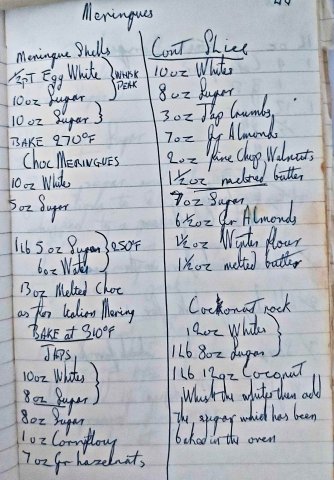 Meringues
Meringue Shells
1/2 pt Egg White
10 oz Sugar
WHISK PEAK
10 oz Sugar
BAKE 270°F
CHOC MERINGUES
10 oz White
5 oz Sugar
1 lb 5 oz Sugar
6 oz Water
250°F
13 oz Melted Choc
as for Italian Mering
BAKE at 310°F
JAPS
10 oz Whites
8 oz Sugar
8 oz Sugar
1 oz Cornflour
7 oz Gr hazelnuts
Cont Slice
10 oz Whites
8 oz Sugar
3 oz Jap Crumbs
7 oz Gr Almonds
2 oz Fine Chop Walnuts
1 1/2 oz melted butter
7 oz Sugar
6 1/2 oz Gr Almonds
1 1/2 oz Winter flour
1 1/2 oz melted butter
Cocknut rock
12 oz Whites
1 Lb 8 oz Sugar
1 Lb 12 oz Coconut
Whisk the white then add
the sugar which has been
baked in the oven